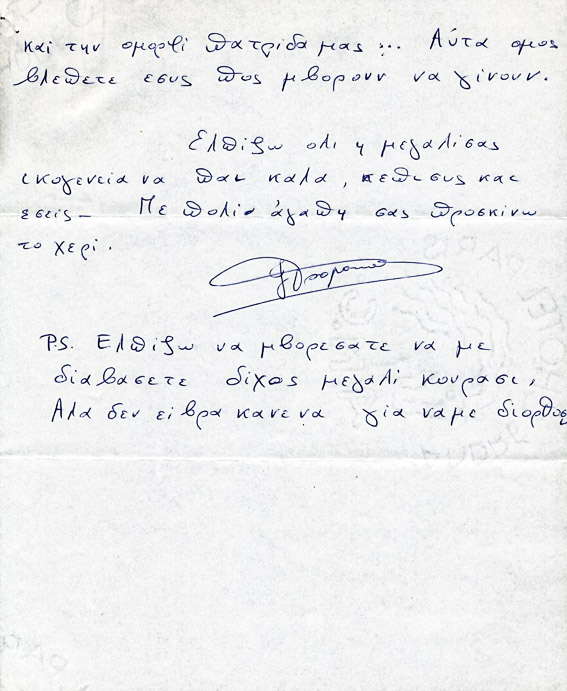 και την ομορφι πατριδα μας ... Αύτα ομος
βλεπετε εσυς πος μβορουν να γίνουν.
Ελπιζω ολι η μεγαλισας
ικογενεια να παι καλα, κεπισυς και
εσεις - Με πολιο άγαπη σας προσκινω
το χερι.
P.S. Ελπιζω να μβορεσατε να με
διαβασετε διχως μεγαλι κουρασι,
Αλα δεν ειβρα κανενα για ναμε διορθοσ